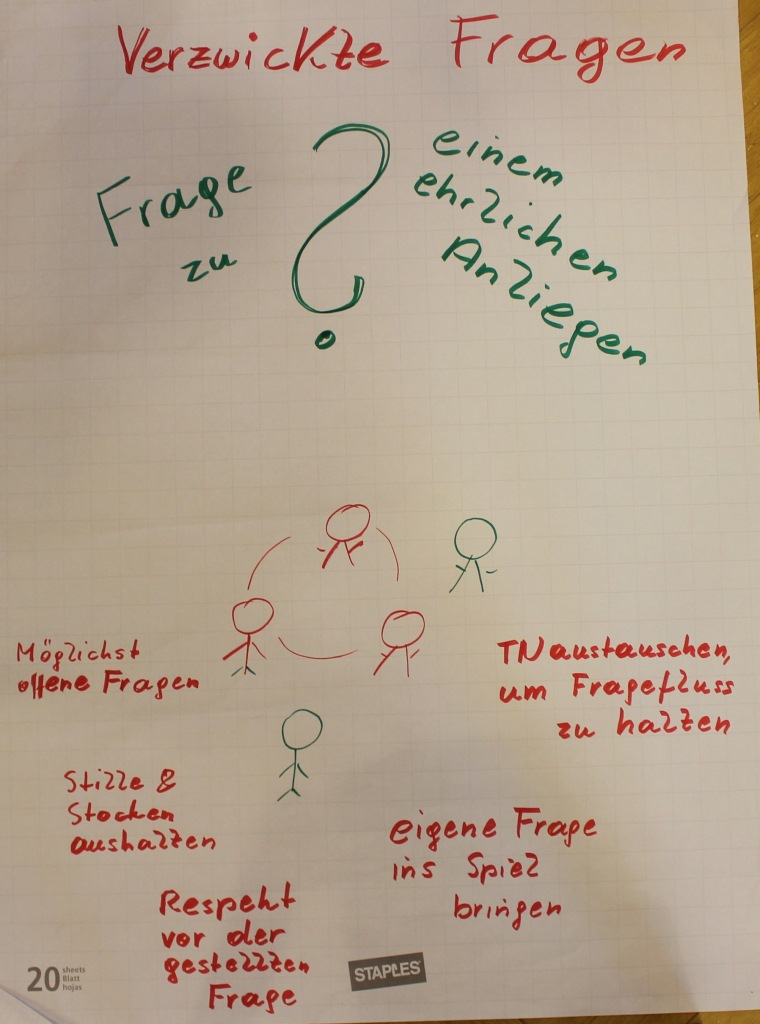 Verzwickte Fragen
Frage
zu
?
einem
ehrlichen
Anliegen
Möglichst
offene Fragen
TN austauschen,
um Fragefluss
zu halten
Stille &
Stocken
aushalten
eigene Frage
ins Spiel
bringen
Respekt
vor der
gestellten
Frage
20 sheets
Blatt
hojas
STAPLES